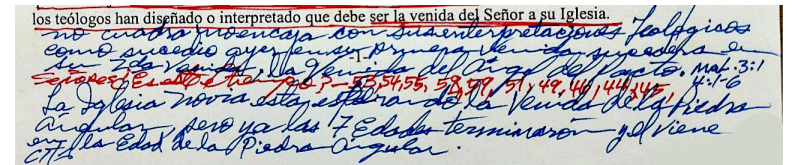 los teólogos han diseñado o interpretado que debe ser la venida del Señor a su Iglesia.
no cuadra no encaja con sus interpretaciones teológicos
como sucedio ayer en su primera Venida, sucedera en
su 2da venida, la Venida del Angel del Pacto. Mal. 3:1
-1-
Señores! Es este tiempo? - 53, 54, 55, 58, 59, 51, 49, 46, 44, 45, 4:1-6
La Iglesia novia esta esperando la Venida de la Piedra
angular, pero ya las 7 Edades terminaron y el viene
en la Edad de la Piedra Angular.